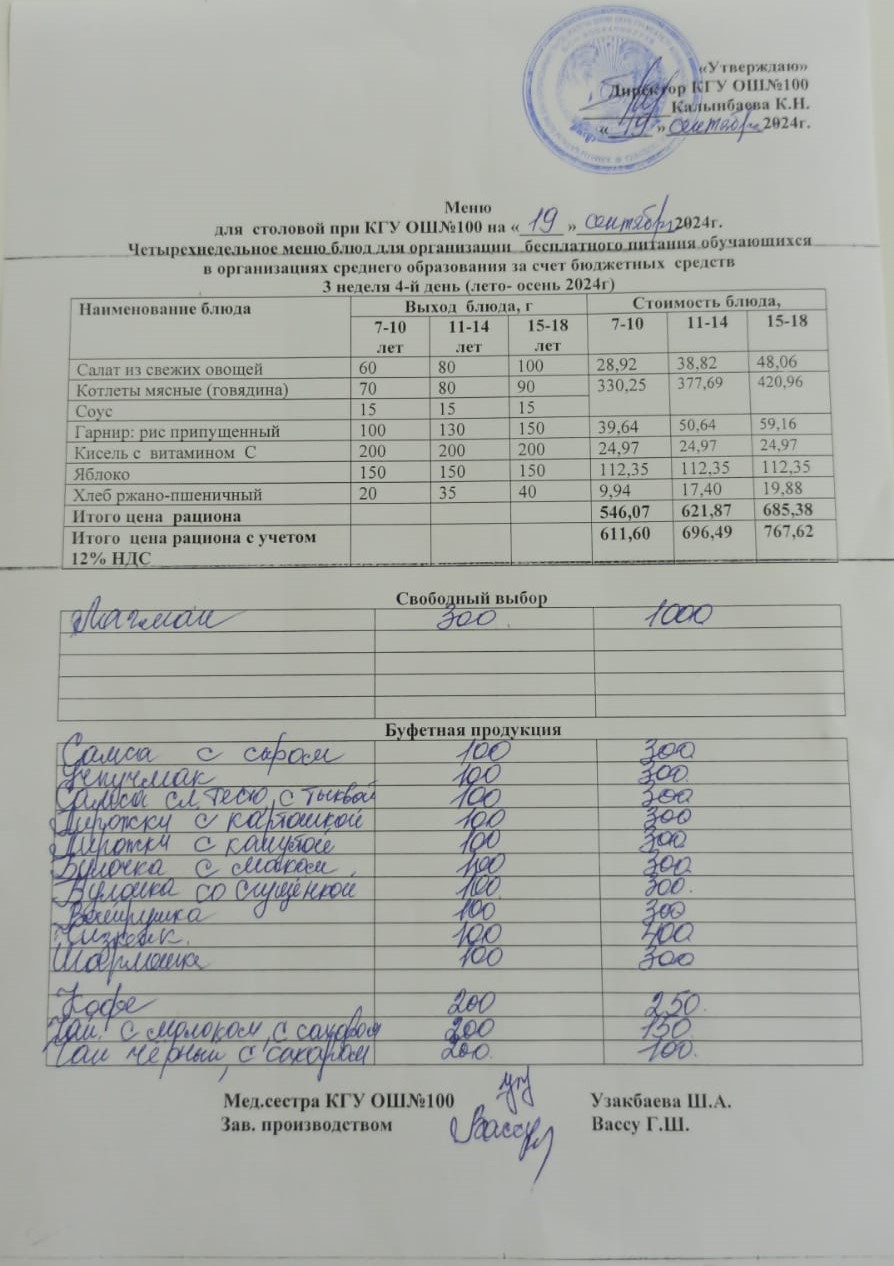 «Утверждаю»
Директор КГУ ОШ№100
Калынбаева К.Н.
« 19 » сентября 2024г.
Меню
для столовой при КГУ ОШ№100 на « 19 » сентября 2024г.
Четырехнедельное меню блюд для организации бесплатного питания обучающихся
в организациях среднего образования за счет бюджетных средств
3 неделя 4-й день (лето- осень 2024г)
Наименование блюда Выход блюда, г Стоимость блюда,
7-10 лет 11-14 лет 15-18 лет 7-10 11-14 15-18
Салат из свежих овощей 60 80 100 28,92 38,82 48,06
Котлеты мясные (говядина) 70 80 90 330,25 377,69 420,96
Соус 15 15 15
Гарнир: рис припущенный 100 130 150 39,64 50,64 59,16
Кисель с витамином С 200 200 200 24,97 24,97 24,97
Яблоко 150 150 150 112,35 112,35 112,35
Хлеб ржано-пшеничный 20 35 40 9,94 17,40 19,88
Итого цена рациона 546,07 621,87 685,38
Итого цена рациона с учетом 611,60 696,49 767,62
12% НДС
Свободный выбор
Лагман 300 1000
Буфетная продукция
Самса с сыром 100 300
Учпучмак 100 300
Самса сл. тесто, с тыквой 100 300
Пирожки с картошкой 100 300
Пирожки с капустой 100 300
Булочка с маком 100 300
Булочка со сгущенкой 100 300
Ватрушка 100 300
Чизкейк 100 400
Шармашка 100 300
Кофе 200 250
Чай с молоком, с сахаром 200 150
Чай черный, с сахаром 200 100
Мед.сестра КГУ ОШ№100 Узакбаева Ш.А.
Зав. производством Вассу Г.Ш.